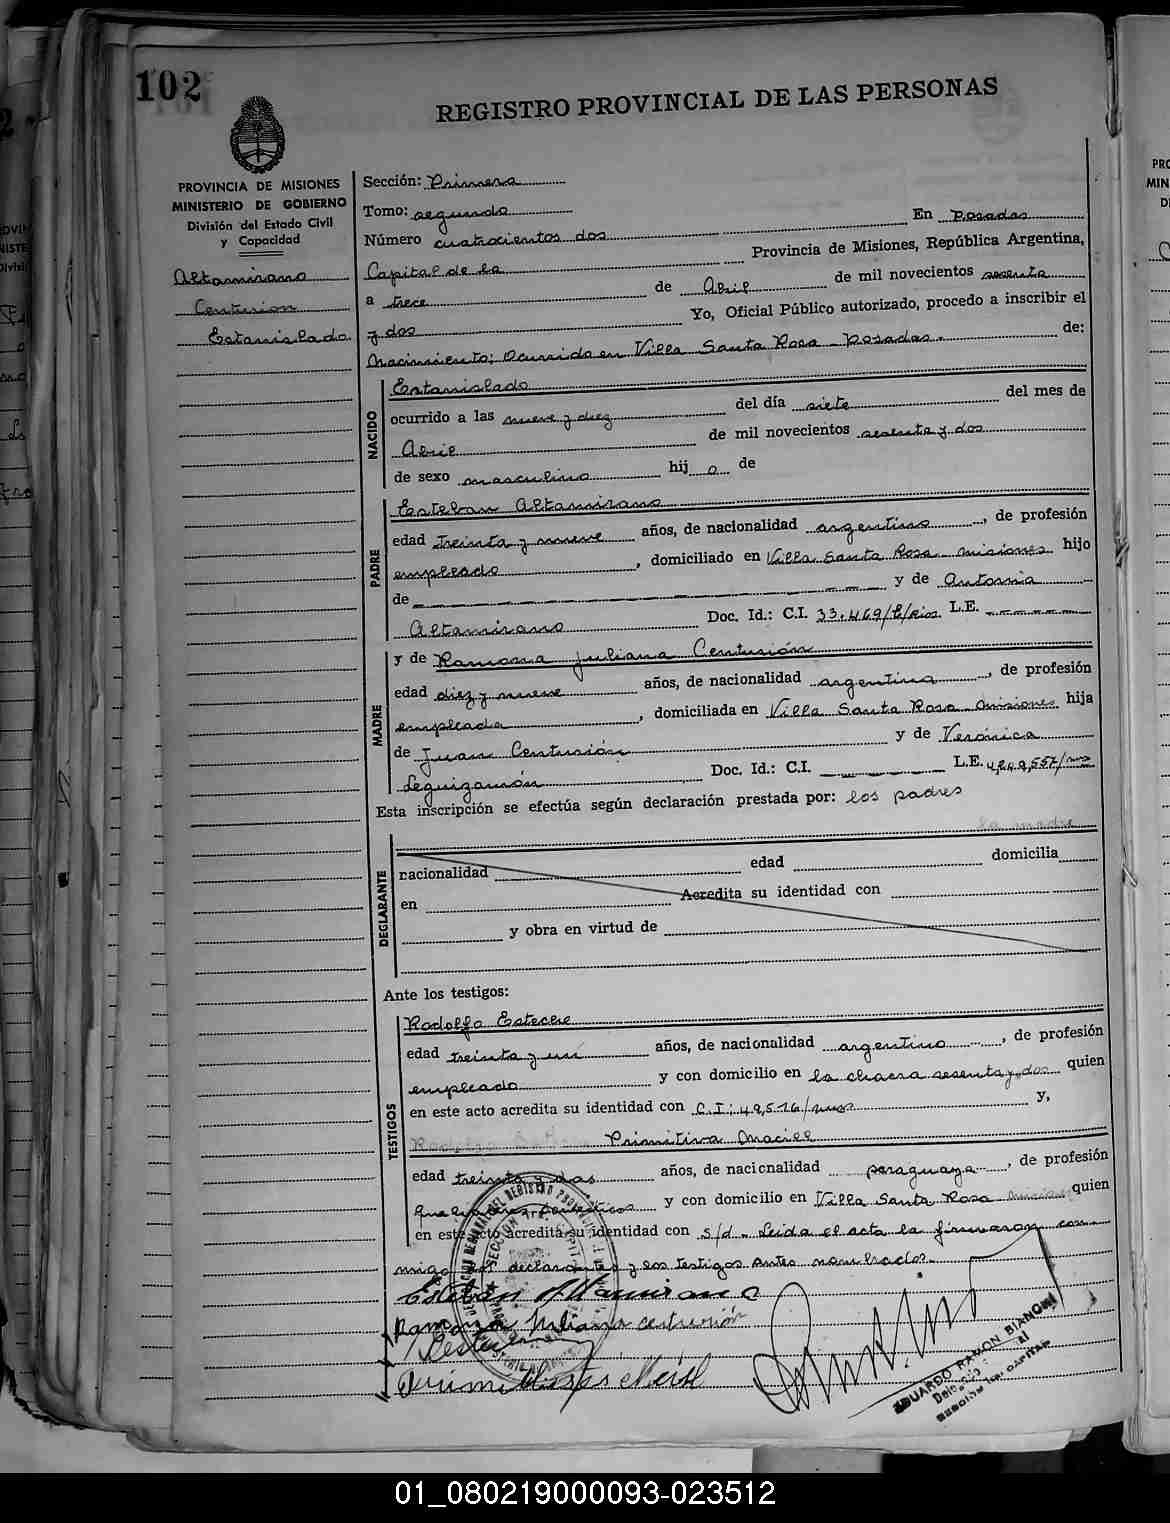 102
REGISTRO PROVINCIAL DE LAS PERSONAS
PROVINCIA DE MISIONES
MINISTERIO DE GOBIERNO
División del Estado Civil
y Capacidad
Altamirano
Centurion
Estanislado.
Sección: Primera
Tomo: segundo
Número cuatrocientos dos En Posadas
Capital de la Provincia de Misiones, República Argentina,
a trece de Abril de mil novecientos sesenta
y dos Yo, Oficial Público autorizado, procedo a inscribir el
Nacimiento; Ocurrido en Villa Santa Rosa - Posadas. de:
NACIDO
Estanislado
ocurrido a las nueve y diez del día siete del mes de
Abril de mil novecientos sesenta y dos
de sexo masculino hij o de
PADRE
Esteban Altamirano
edad treinta y nueve años, de nacionalidad argentino, de profesión
empleado, domiciliado en Villa Santa Rosa - Misiones hijo
de y de Antonia
Altamirano Doc. Id.: C.I. 33.469/E/Rios. L.E.
MADRE
y de Ramona Juliana Centurión
edad diez y nueve años, de nacionalidad argentina, de profesión
empleada, domiciliada en Villa Santa Rosa - Misiones hija
de Juan Centurión y de Verónica
Leguizamón Doc. Id.: C.I. L.E. 4,249,557/
Esta inscripción se efectúa según declaración prestada por: los padres
la madre
DECLARANTE
nacionalidad edad domicilia
en Acredita su identidad con
y obra en virtud de
Ante los testigos:
TESTIGOS
Rodolfo Esteche
edad treinta y un años, de nacionalidad argentino, de profesión
empleado y con domicilio en la chacra sesenta y dos quien
en este acto acredita su identidad con C.I; 49,516/mnes y,
Primitiva Maciel
edad treinta y dos años, de nacionalidad paraguaya, de profesión
quehaceres domésticos y con domicilio en Villa Santa Rosa quien
en este acto acredita su identidad con s/d - Leida el acta la firmaron con-
migo los declarantes y los testigos antes nombrados.
Esteban Altamirano
Ramona Juliana centurión
EDUARDO RAMON BIANCHI
01_080219000093-023512